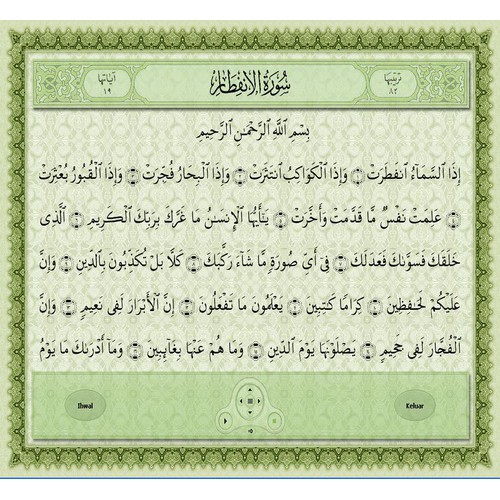 ترتيبها
٨٢
سُورَةُ الإِنفِطَارِ
آياتها
١٩
بِسْمِ ٱللَّهِ ٱلرَّحْمَـٰنِ ٱلرَّحِيمِ
إِذَا ٱلسَّمَآءُ ٱنفَطَرَتْ ۝١ وَإِذَا ٱلْكَوَاكِبُ ٱنتَثَرَتْ ۝٢ وَإِذَا ٱلْبِحَارُ فُجِّرَتْ ۝٣ وَإِذَا ٱلْقُبُورُ بُعْثِرَتْ
۝٤ عَلِمَتْ نَفْسٌ مَّا قَدَّمَتْ وَأَخَّرَتْ ۝٥ يَـٰٓأَيُّهَا ٱلْإِنسَـٰنُ مَا غَرَّكَ بِرَبِّكَ ٱلْكَرِيمِ ۝٦ ٱلَّذِى
خَلَقَكَ فَسَوَّىٰكَ فَعَدَلَكَ ۝٧ فِىٓ أَىِّ صُورَةٍ مَّا شَآءَ رَكَّبَكَ ۝٨ كَلَّا بَلْ تُكَذِّبُونَ بِٱلدِّينِ ۝٩ وَإِنَّ
عَلَيْكُمْ لَحَـٰفِظِينَ ۝١٠ كِرَامًا كَـٰتِبِينَ ۝١١ يَعْلَمُونَ مَا تَفْعَلُونَ ۝١٢ إِنَّ ٱلْأَبْرَارَ لَفِى نَعِيمٍ ۝١٣ وَإِنَّ
ٱلْفُجَّارَ لَفِى جَحِيمٍ ۝١٤ يَصْلَوْنَهَا يَوْمَ ٱلدِّينِ ۝١٥ وَمَا هُمْ عَنْهَا بِغَآئِبِينَ ۝١٦ وَمَآ أَدْرَىٰكَ مَا يَوْمُ
Ihwal
Keluar